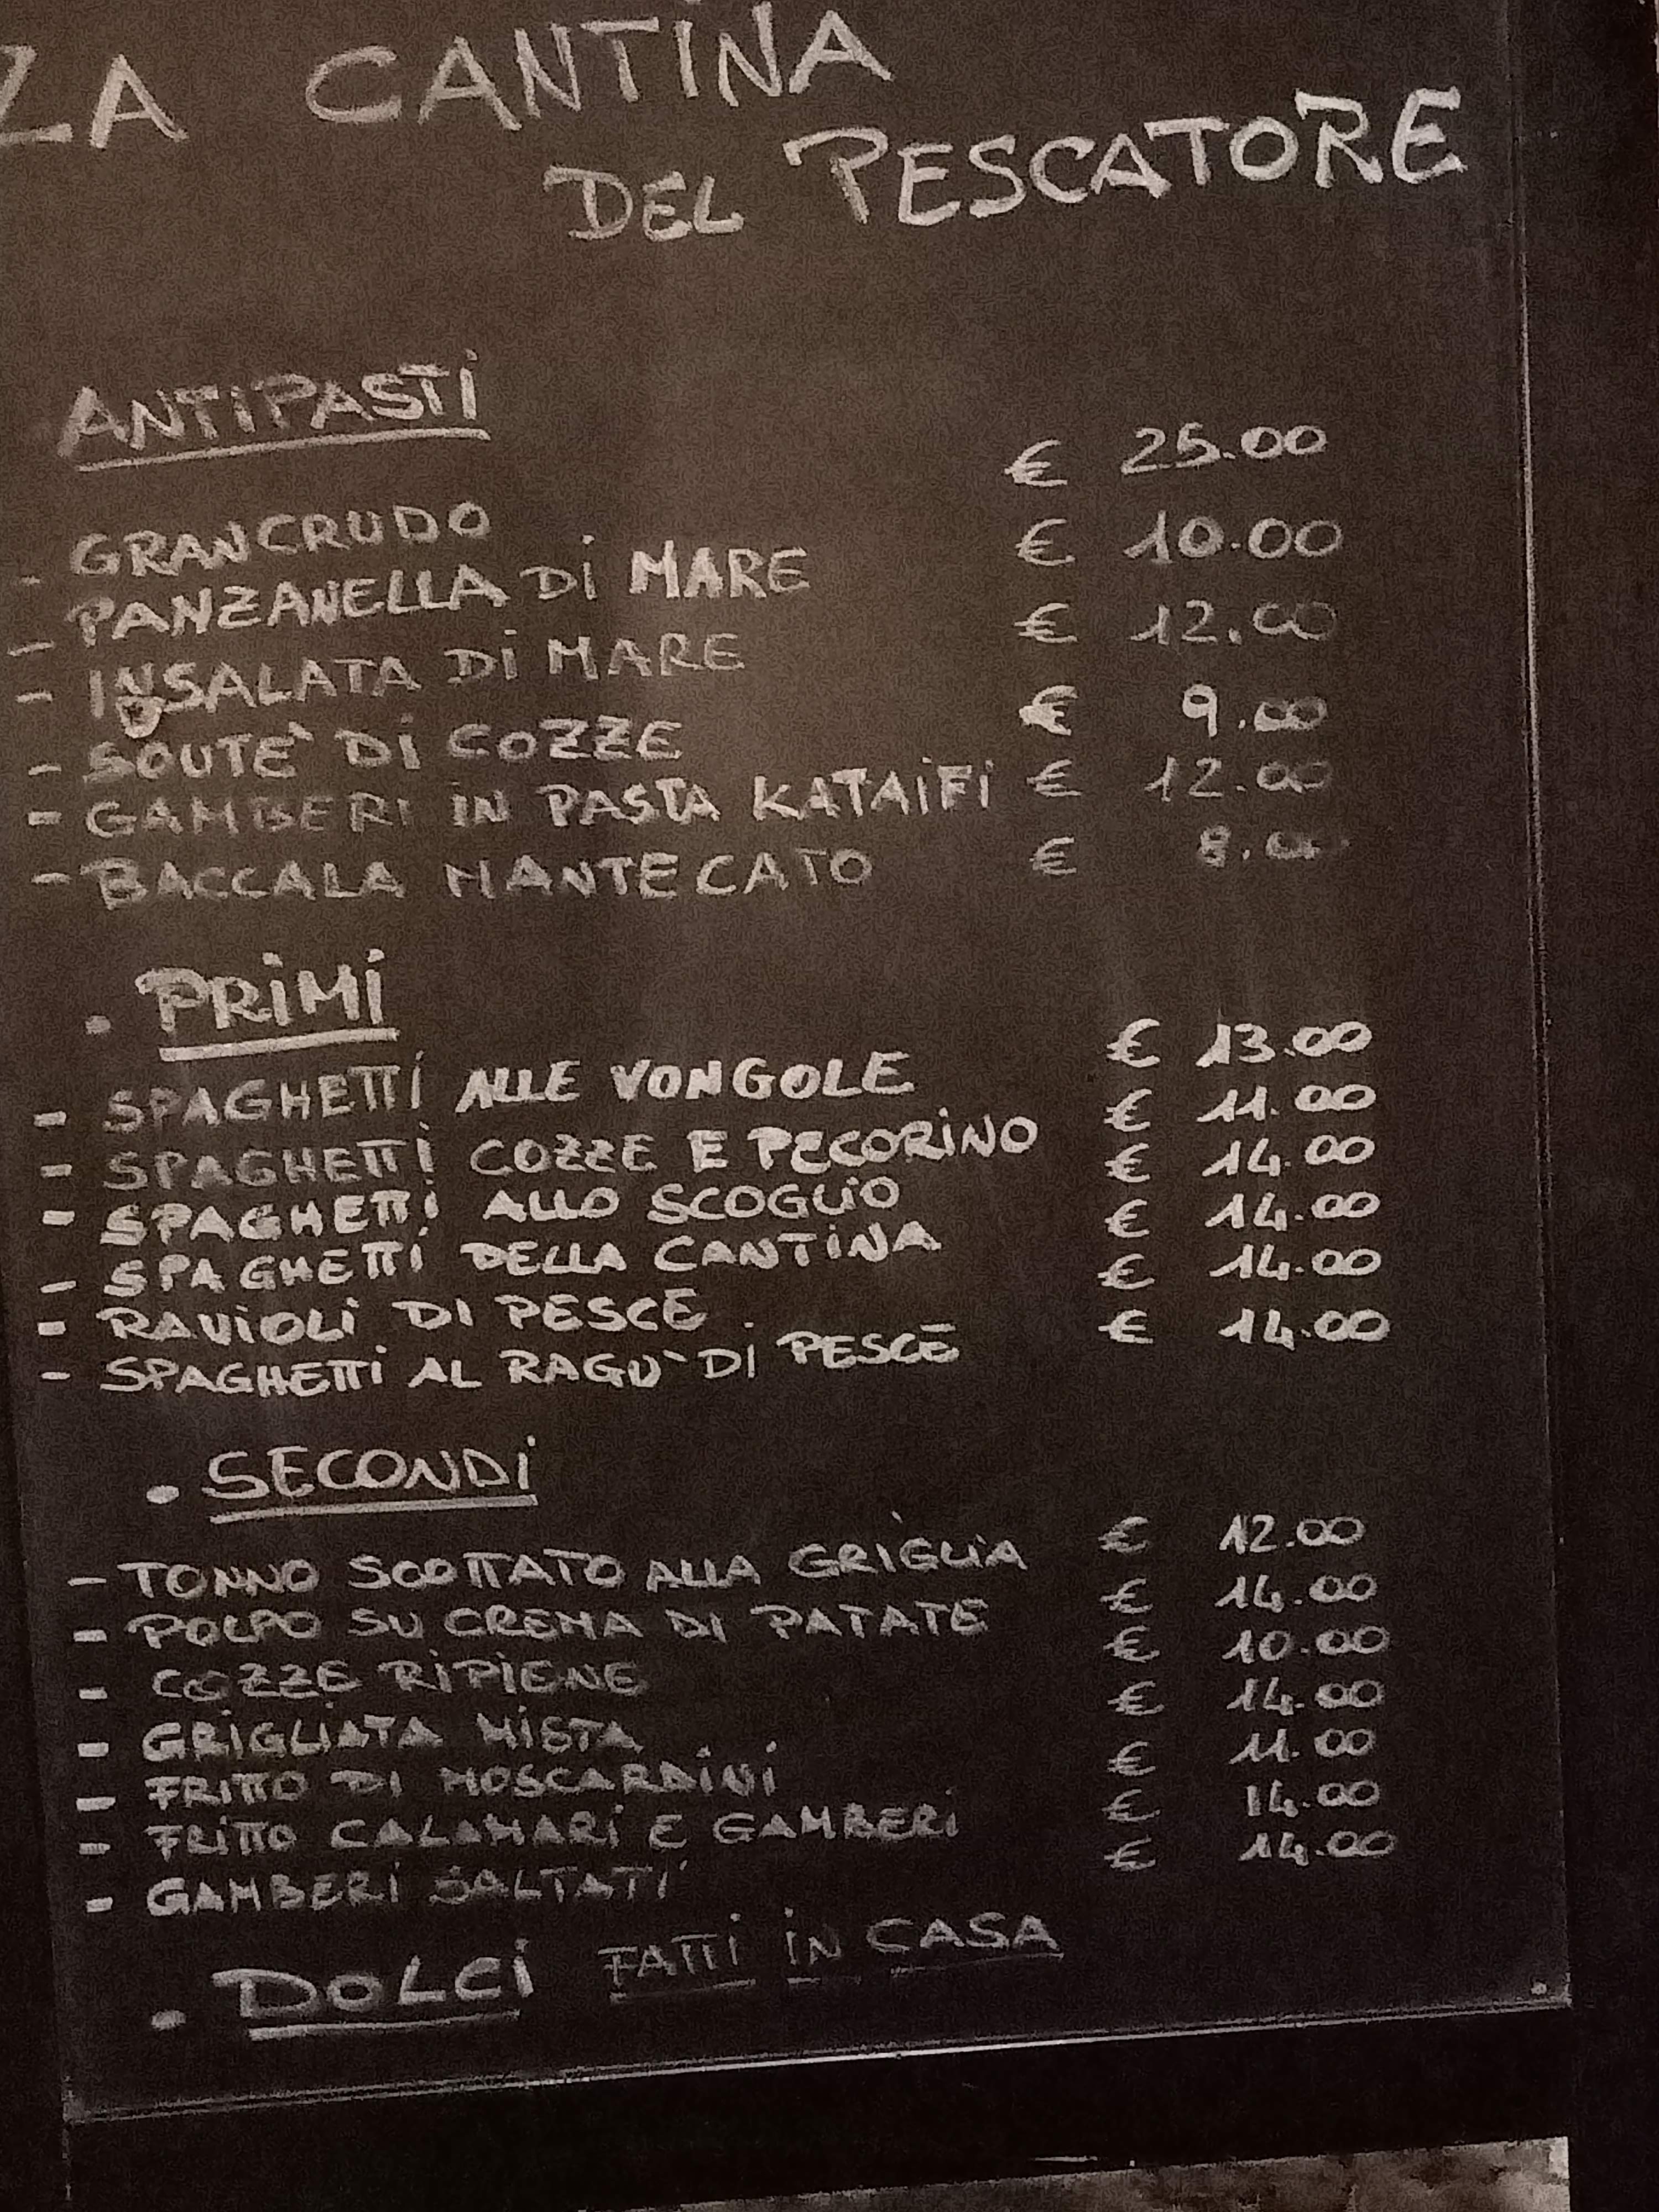 LA CANTINA
DEL PESCATORE
ANTIPASTI
- GRANCRUDO € 25.00
- PANZANELLA DI MARE € 10.00
- INSALATA DI MARE € 12.00
- SOUTE` DI COZZE € 9.00
- GAMBERI IN PASTA KATAIFI € 12.00
- BACCALA MANTECATO € 8.00
. PRIMI
- SPAGHETTI ALLE VONGOLE € 13.00
- SPAGHETTI COZZE E PECORINO € 11.00
- SPAGHETTI ALLO SCOGLIO € 14.00
- SPAGHETTI DELLA CANTINA € 14.00
- RAVIOLI DI PESCE € 14.00
- SPAGHETTI AL RAGU` DI PESCE € 14.00
. SECONDI
- TONNO SCOTTATO ALLA GRIGLIA € 12.00
- POLPO SU CREMA DI PATATE € 14.00
- COZZE RIPIENE € 10.00
- GRIGLIATA MISTA € 14.00
- FRITTO DI MOSCARDINI € 11.00
- FRITTO CALAMARI E GAMBERI € 14.00
- GAMBERI SALTATI € 14.00
. DOLCI FATTI IN CASA